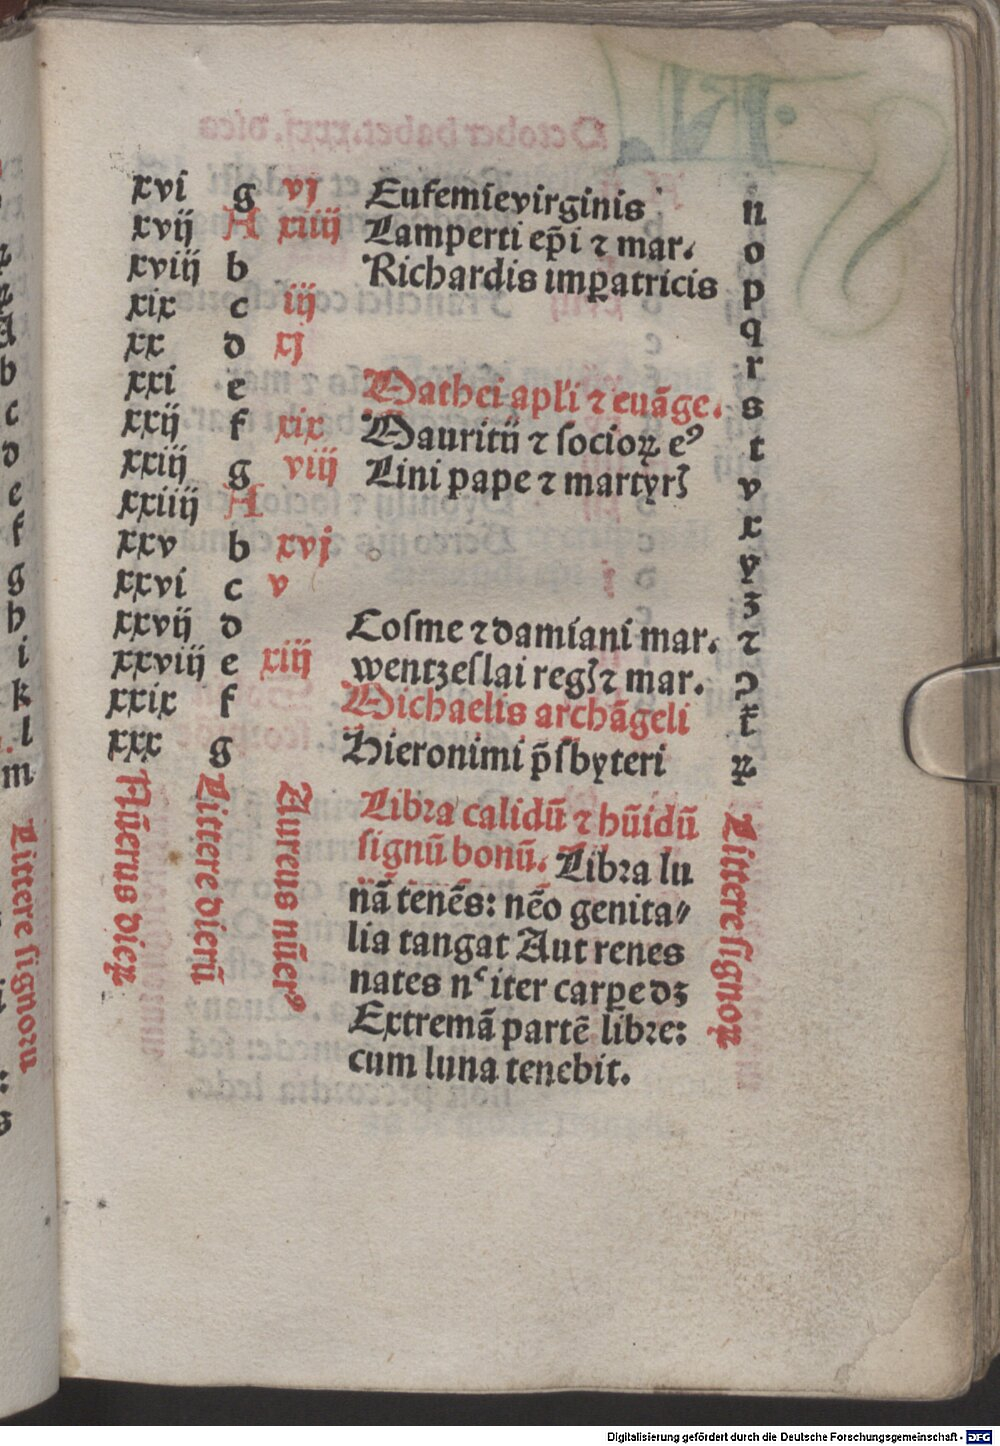 xvi g vj Eufemievirginis n
xvij A xiiij Lamperti ep̄i ⁊ mar. o
xviij b Richardis imꝑatricis p
xix c iij q
xx d xj r
xxi e Mathei apl'i ⁊ euāge. s
xxij f xix Mauritij ⁊ socioꝝ eꝰ t
xxiij g viij Lini pape ⁊ martyrꝭ v
xxiiij A x
xxv b xvj y
xxvi c v ʒ
xxvij d Cosme ⁊ damiani mar. ⁊
xxviij e xiij wentzeſlai regꝭ ⁊ mar. ꝯ
xxix f Michaelis archāgeli t̄
xxx g Hieronimi p̄ſbyteri ꝝ
Nūerus dieꝝ
Littere dierū
Aureus nūerꝰ
Libra calidū ⁊ hūidū
signū bonū. Libra lu
nā tenēs: nēo genita⸗
lia tangat Aut renes
nates nᶜ iter carpe dʒ
Extremā partē libre:
cum luna tenebit.
Littere signoꝝ
b
c
d
e
f
g
h
i
k
l
m
Littere signoru
Digitalisierung gefördert durch die Deutsche Forschungsgemeinschaft - DFG